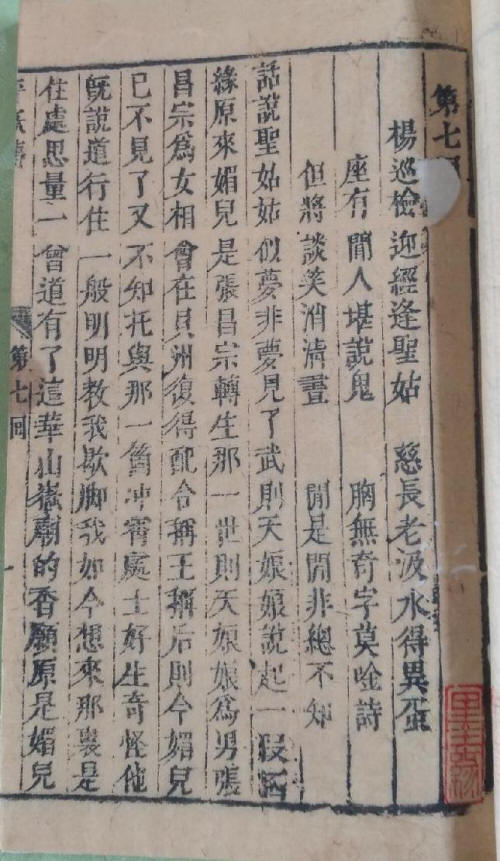 第七回
楊巡檢迎經逢聖姑　慈長老汲水得異蛋
座有閒人堪說鬼　胸無奇字莫唫詩
但將談笑消清晝　閒是閒非總不知
話說聖姑姑似夢非夢見了武則天娘娘說起一段話
緣原來媚兒是張昌宗轉生那一世則天娘娘爲男張
昌宗爲女相會在貝州復得配合稱王稱后則今媚兒
已不見了又不知托與那一箇冲霄處士好生奇怪他
旣說道行住一般明明教我歇脚我如今想來那裏是
住處思量一會道有了這華山嶽廟的香願原是媚兒
第七回